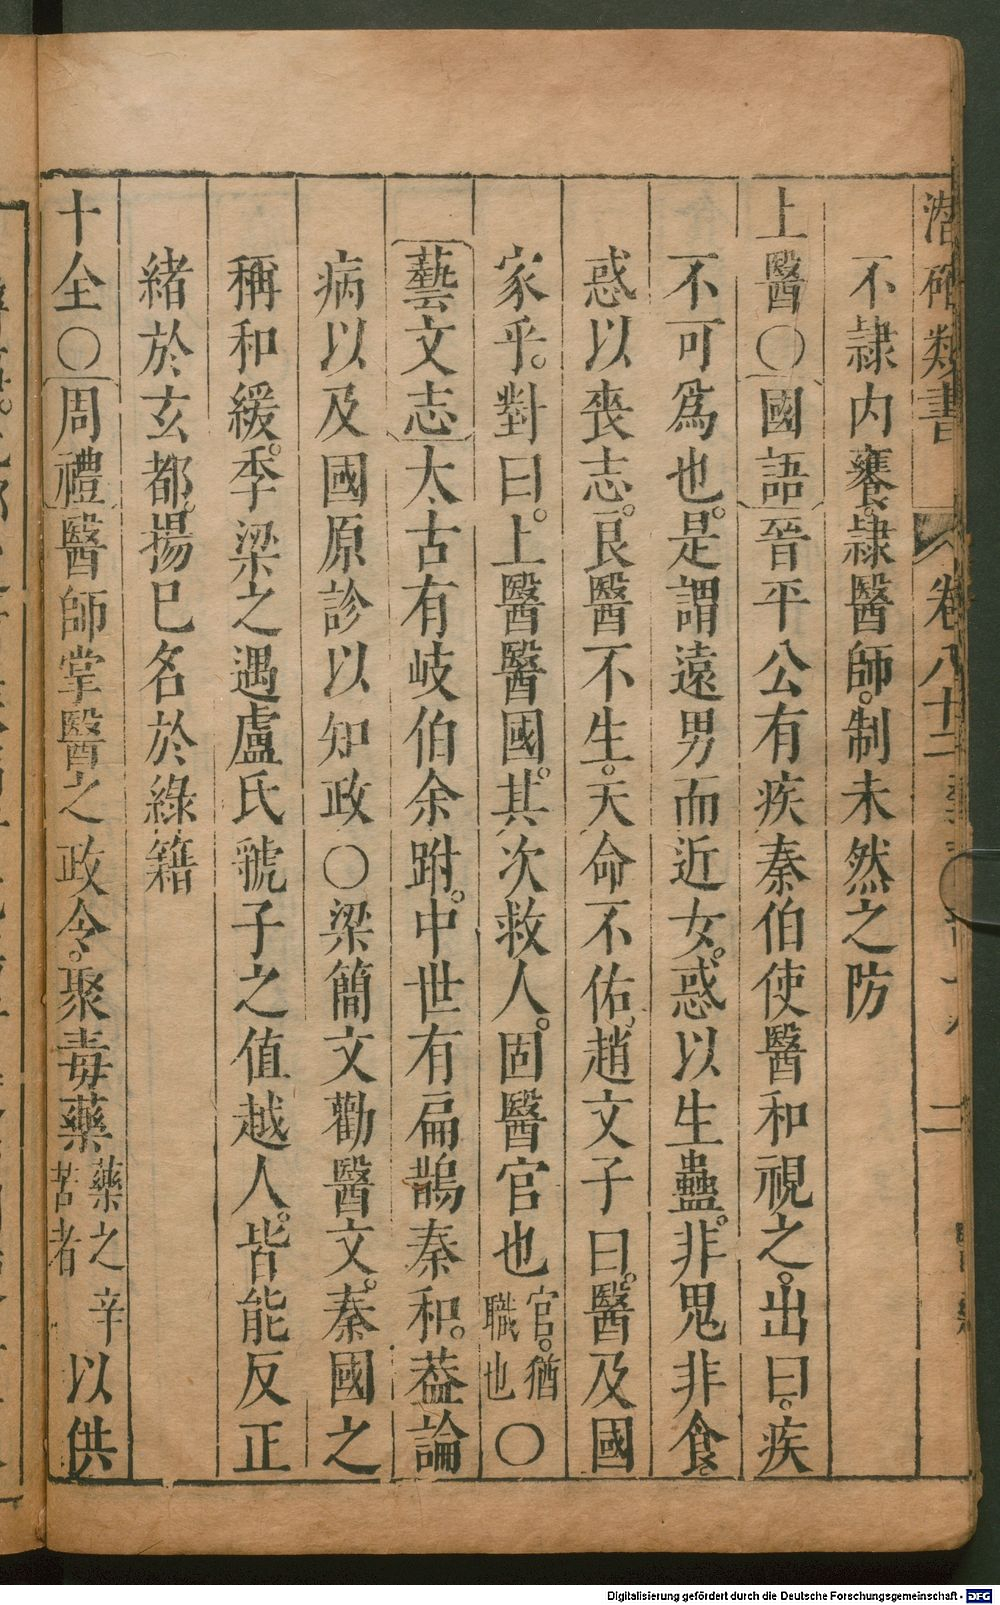 潛確類書 卷八十二 二
不隷内饔。隷醫師。制未然之防
上醫〇國語晉平公有疾秦伯使醫和視之。出曰。疾
不可爲也。是謂遠男而近女。惑以生蠱。非鬼非食。
惑以喪志。良醫不生。天命不佑。趙文子曰。醫及國
家乎。對曰。上醫醫國。其次救人。固醫官也官。猶職也〇
藝文志太古有岐伯余跗。中世有扁鵲秦和。葢論
病以及國原診以知政〇梁簡文勸醫文。秦國之
稱和緩。季梁之遇盧氏虢子之值越人。皆能反正
緒於玄都。揚巳名於綠籍
十全〇周禮醫師掌醫之政令。聚毒藥藥之辛苦者以供
Digitalisierung gefördert durch die Deutsche Forschungsgemeinschaft - DFG